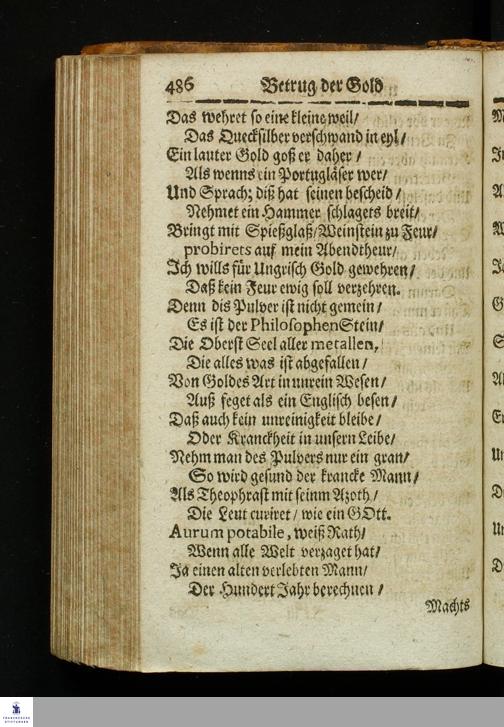 486 Betrug der Gold
Das wehret so eine kleine weil/
Das Quecksilber verschwand in eyl/
Ein lauter Gold goß er daher /
Als wenns ein Portugläser wer/
Und Sprach; diß hat seinen bescheid /
Nehmet ein Hammer schlagets breit/
Bringt mit Spießglaß/Weinstein zu Feur/
probirets auf mein Abendtheur/
Ich wills für Ungrisch Gold gewehren/
Daß kein Feur ewig soll verzehren.
Denn dis Pulver ist nicht gemein/
Es ist der PhilosophenStein/
Die Oberst Seel aller metallen,
Die alles was ist abgefallen/
Von Goldes Art in unrein Wesen/
Auß feget als ein Englisch besen/
Daß auch kein unreinigkeit bleibe/
Oder Kranckheit in unsern Leibe/
Nehm man des Pulvers nur ein gran/
So wird gesund der krancke Mann/
Als Theophrast mit seinm Azoth/
Die Leut curiret/ wie ein GOtt.
Aurum potabile, weiß Rath/
Wenn alle Welt verzaget hat/
Ja einen alten verlebten Mann/
Der Hundert Jahr berechnen /
Machts
FRANCKESCHE
STIFTUNGEN